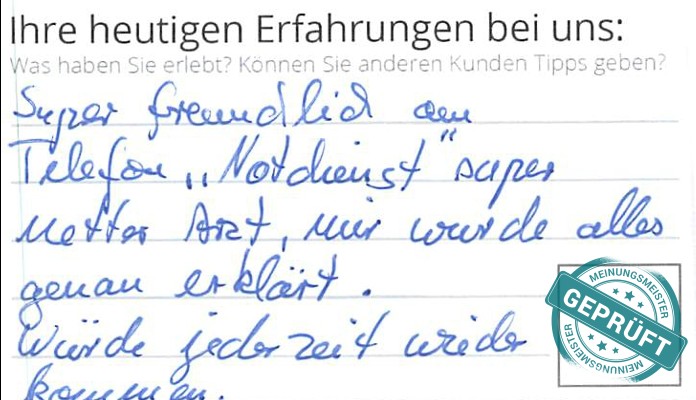 Ihre heutigen Erfahrungen bei uns:
Was haben Sie erlebt? Können Sie anderen Kunden Tipps geben?
Super freundlich am
Telefon „Notdienst" super
netter Arzt, mir wurde alles
genau erklärt.
Würde jederzeit wieder
kommen.
MEINUNGSMEISTER
GEPRÜFT
MEINUNGSMEISTER